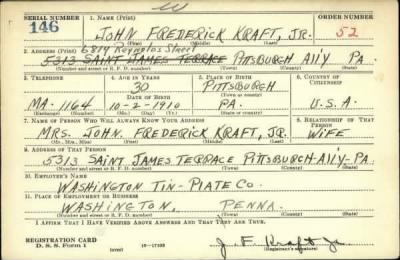 SERIAL NUMBER
1. NAME (Print)
ORDER NUMBER
146
JOHN FREDERICK KRAFT, JR.
52
(First) (Middle) (Last)
6814 Reynolds Street
2. ADDRESS (Print)
5313 SAINT JAMES TERRACE PITTSBURGH ALL'Y PA.
(Number and street or R. F. D. number) (Town) (County) (State)
3. TELEPHONE
4. AGE IN YEARS
5. PLACE OF BIRTH
6. COUNTRY OF CITIZENSHIP
30
PITTSBURGH
DATE OF BIRTH
(Town or county)
MA. 1164
10-2-1910
PA.
U.S.A.
(Exchange) (No.)
(Mo.) (Day) (Yr.)
(State or country)
7. NAME OF PERSON WHO WILL ALWAYS KNOW YOUR ADDRESS
8. RELATIONSHIP OF THAT PERSON
MRS. JOHN FREDERICK KRAFT, JR.
WIFE
(Mr., Mrs., Miss) (First) (Middle) (Last)
9. ADDRESS OF THAT PERSON
5313 SAINT JAMES TERRACE PITTSBURGH-ALL'Y-PA.
(Number and street or R. F. D. number) (Town) (County) (State)
10. EMPLOYER'S NAME
WASHINGTON TIN-PLATE CO.
11. PLACE OF EMPLOYMENT OR BUSINESS
WASHINGTON, PENNA.
(Number and street or R. F. D. number) (Town) (County) (State)
I AFFIRM THAT I HAVE VERIFIED ABOVE ANSWERS AND THAT THEY ARE TRUE.
REGISTRATION CARD
D. S. S. Form 1
(over)
16-17105
J. F. Kraft Jr.
(Registrant's signature)